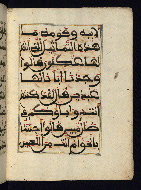 لأبيه وقومه ما
هذه التماثيل التي أنتم
لها عكفون قالوا
وجدنا آباءنا لها
عبدين قال لقد كنتم
أنتم وآباؤكم في
ضلل مبين قالوا أجئتنا
بالحق أم أنت من اللعبين